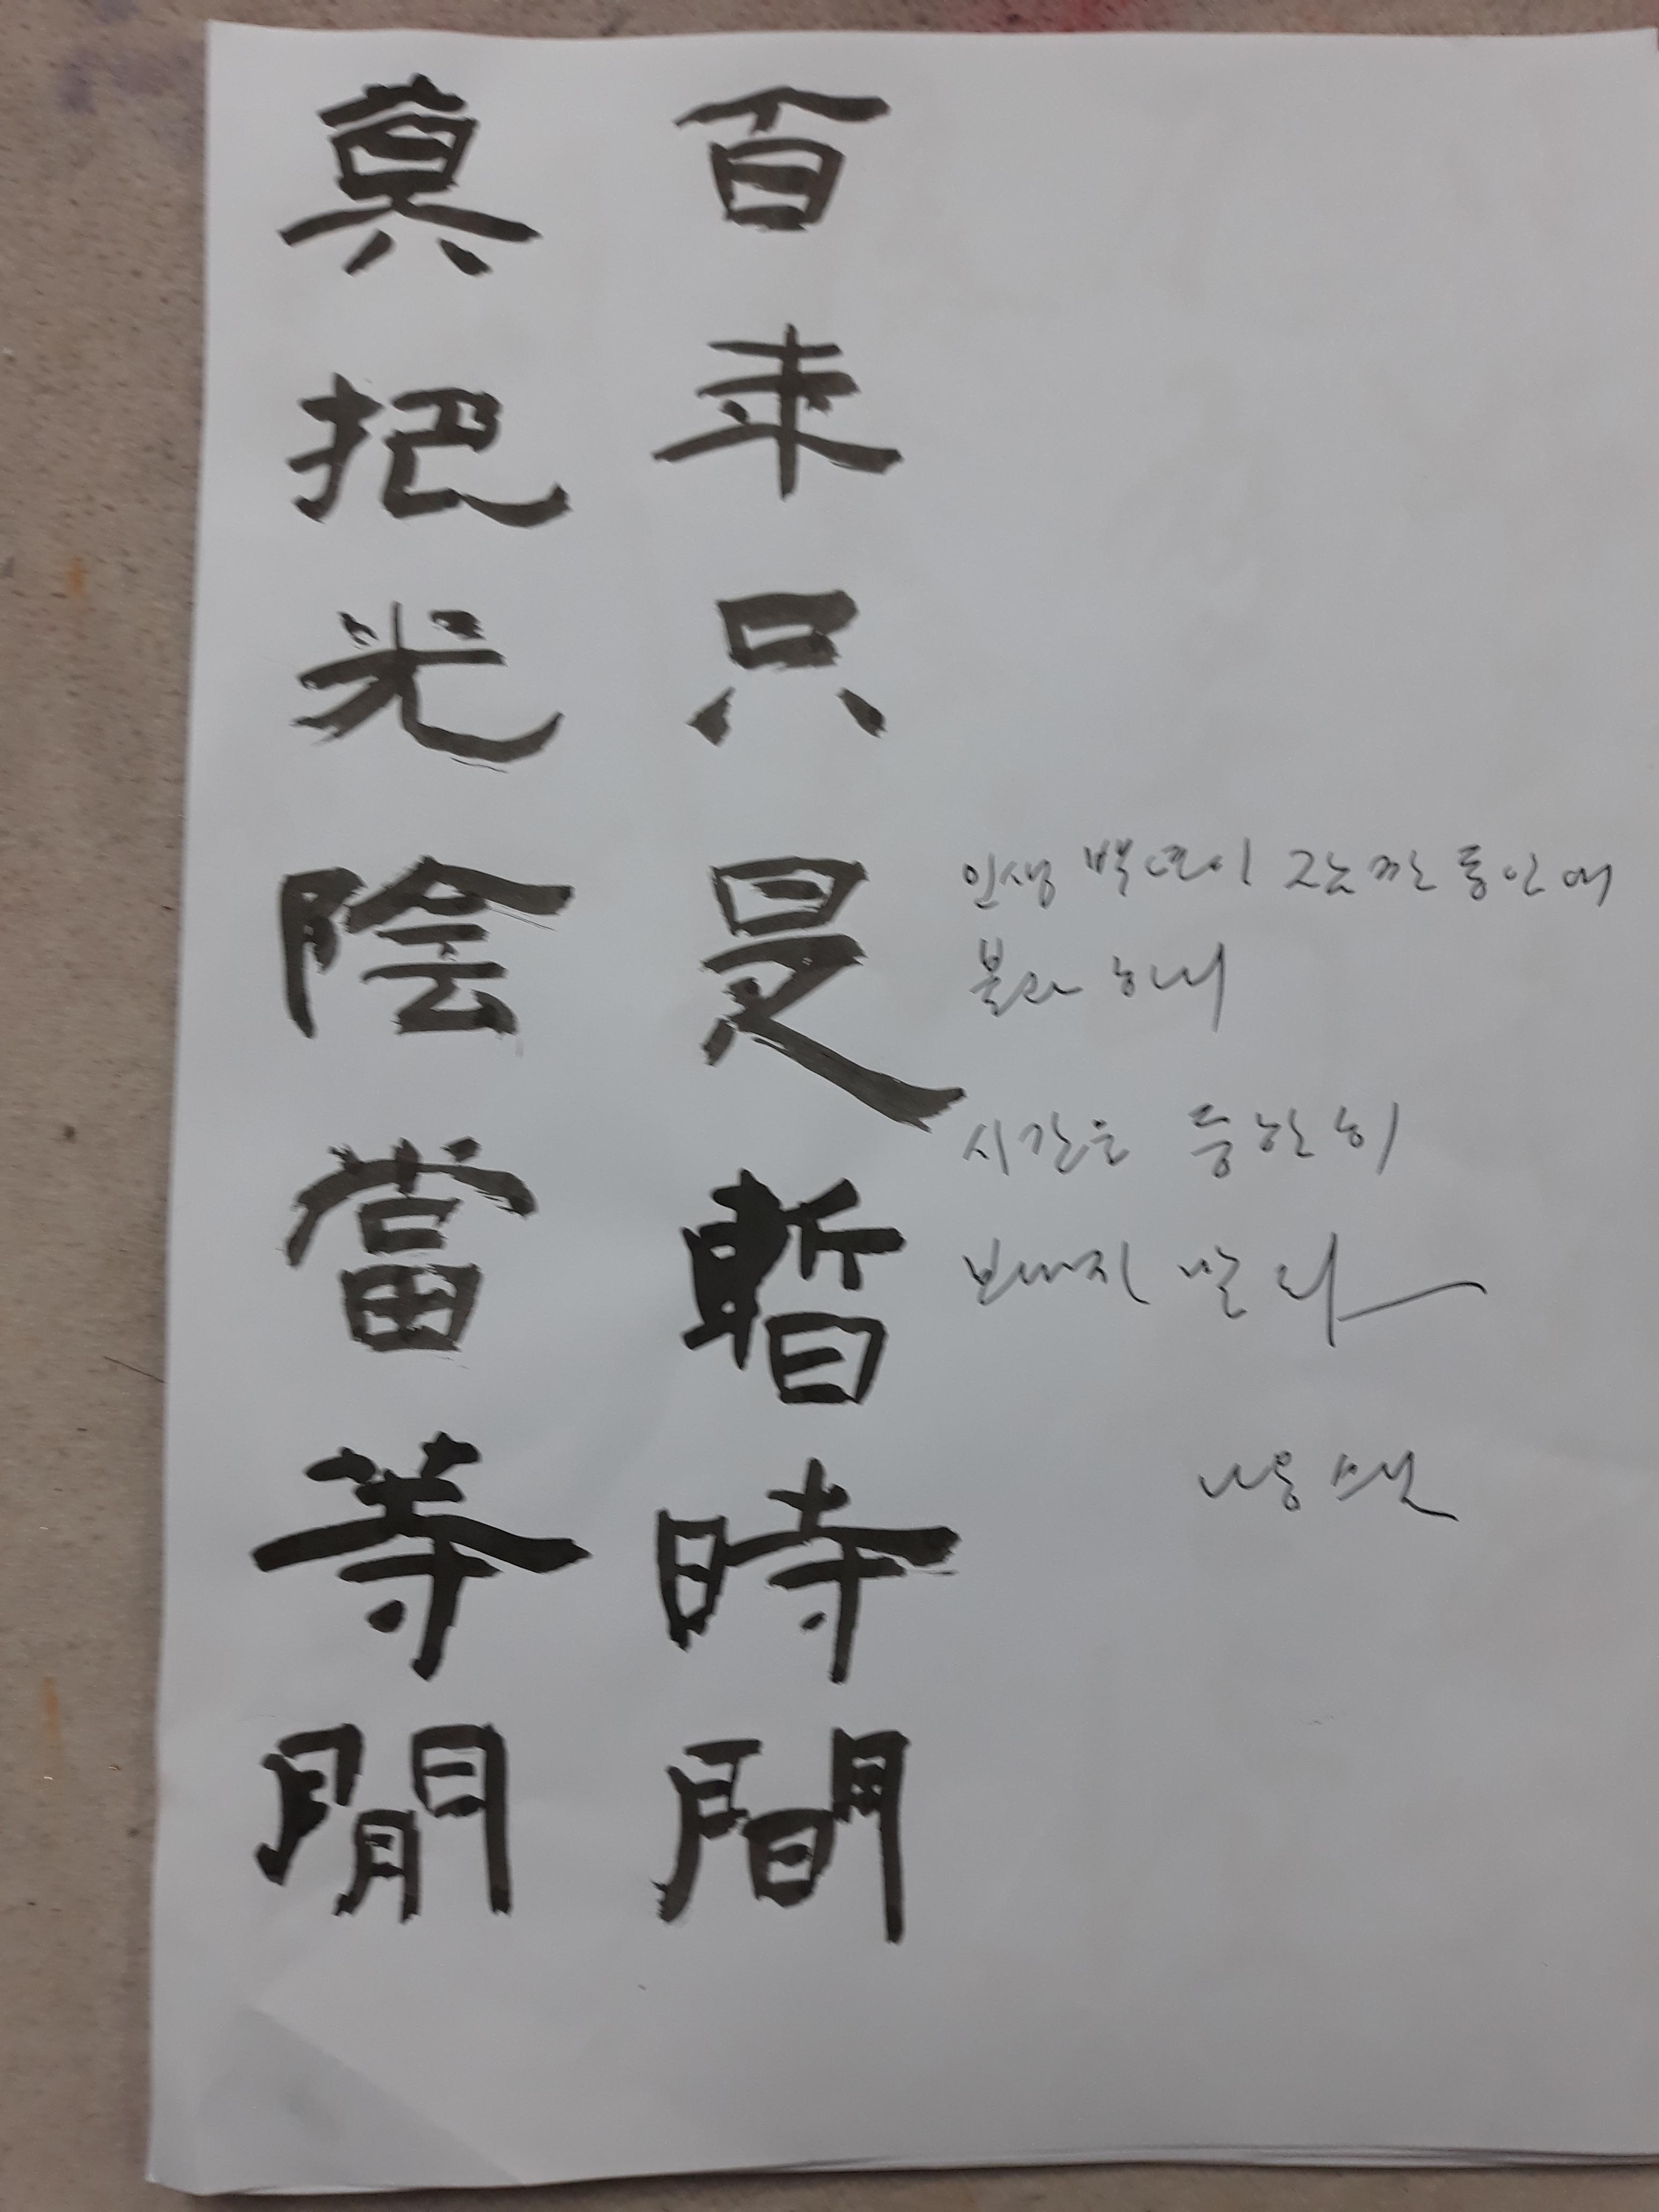 百年只是暫時間
莫把光陰當等閒
인생 백년이 그 잠깐 동안에
불과하니
시간을 등한히
보내지 말라
나옹 선